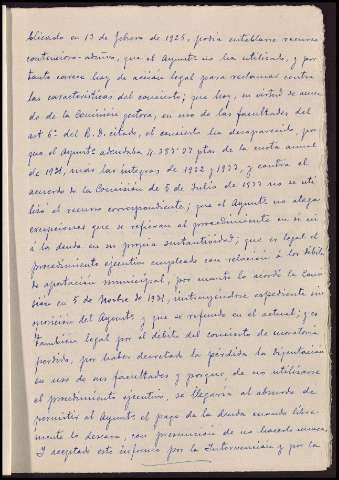 blicado en 13 de febrero de 1925, podia entablarse recurso
contencioso-admvo, que el Ayuntº no ha utilizado, y por
tanto carece hoy de acción legal para reclamar contra
las características del concierto; que hoy, en virtud de acuer-
do de la Comisión gestora, en uso de las facultades del
art 6º del R. D. citado, el concierto ha desaparecido, por-
que el Ayuntº adeudaba 4.353'77 ptas de la cuota anual
de 1931, más las íntegras de 1932 y 1933, y contra el
acuerdo de la Comisión de 5 de Julio de 1933 no se uti
lizó el recurso correspondiente; que el Ayuntº no alega
excepciones que se refieran al procedimiento en sí ni
á la deuda en su propia sustantividad; que es legal el
procedimiento ejecutivo empleado con relación á los débitos
de aportación municipal, por cuanto lo acordó la Comi
sión en 5 de Novbre de 1931, instruyéndose expediente sin
oposición del Ayuntº y que se refunde en el actual; y es
también legal por el débito del concierto de moratoria
perdida, por haber decretado la pérdida la Diputación
en uso de sus facultades y porque de no utilizarse
el procedimiento ejecutivo, se llegaría al absurdo de
permitir al Ayuntº el pago de la deuda cuando libre
mente lo deseara, con presunción de no hacerlo nunca.
Y aceptado este informe por la Intervención y por la